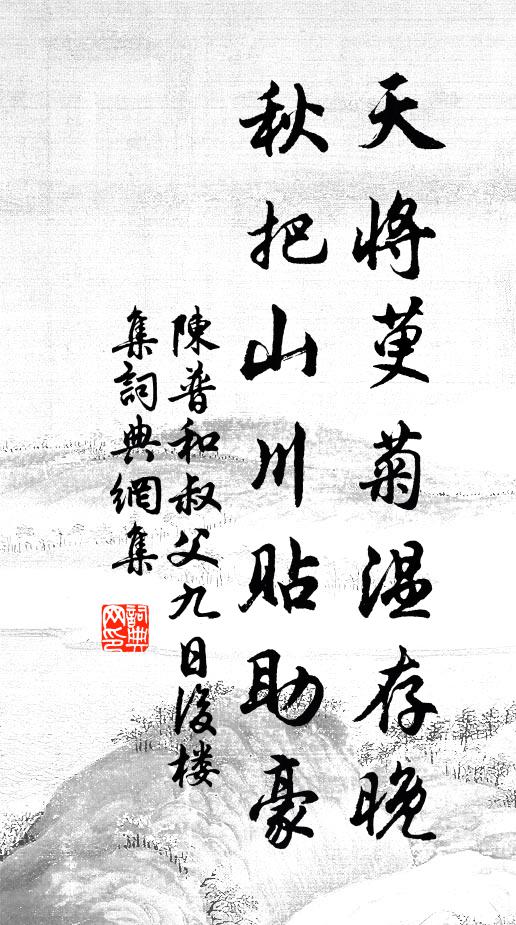 天將萸菊溫存晚
秋把山川貼助豪
陳普和叔父九日後楼
集詞典網集
詞典網印